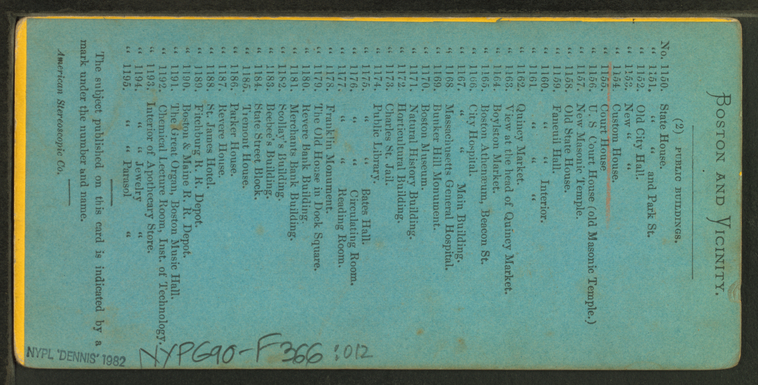 BOSTON AND VICINITY.
(2) PUBLIC BUILDINGS.
No. 1150. State House.
" 1151. " " and Park St.
" 1152. Old City Hall.
" 1153. New " "
" 1154. Custom House.
" 1155. Court House
" 1156. U. S. Court House (old Masonic Temple.)
" 1157. New Masonic Temple.
" 1158. Old State House.
" 1159. Faneuil Hall.
" 1160. " " Interior.
" 1161. " "
" 1162. Quincy Market.
" 1163. View at the head of Quincy Market.
" 1164. Boylston Market.
" 1165. Boston Atheneum, Beacon St.
" 1166. City Hospital.
" 1167. " " Main Building.
" 1168. Massachusetts General Hospital.
" 1169. Bunker Hill Monument.
" 1170. Boston Museum.
" 1171. Natural History Building.
" 1172. Horticultural Building.
" 1173. Charles St. Jail.
" 1174. Public Library.
" 1175. " " Bates Hall.
" 1176. " " Circulating Room.
" 1177. " " Reading Room.
" 1178. Franklin Monument.
" 1179. The Old House in Dock Square.
" 1180. Revere Bank Building.
" 1181. Merchant's Bank Building.
" 1182. Scollay's Building.
" 1183. Beebee's Building.
" 1184. State Street Block.
" 1185. Tremont House.
" 1186. Parker House.
" 1187. Revere House.
" 1188. St. James Hotel.
" 1189. Fitchburg R. R. Depot.
" 1190. Boston & Maine R. R. Depot.
" 1191. The Great Organ, Boston Music Hall.
" 1192. Chemical Lecture Room, Inst. of Technology.
" 1193. Interior of Apothecary Store.
" 1194. " " Jewelry "
" 1195. " " Parasol "
The subject published on this card is indicated by a
mark under the number and name.
American Stereoscopic Co.
NYPL "DENNIS" 1982
NYPG90-F366 :012